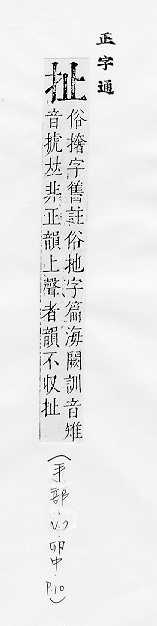 正字通
扯
俗撦字舊註俗地字篇海闕訓音雉
音𠀤非正韻上聲者韻不収扯
(手部·V.7卯中·P.10)